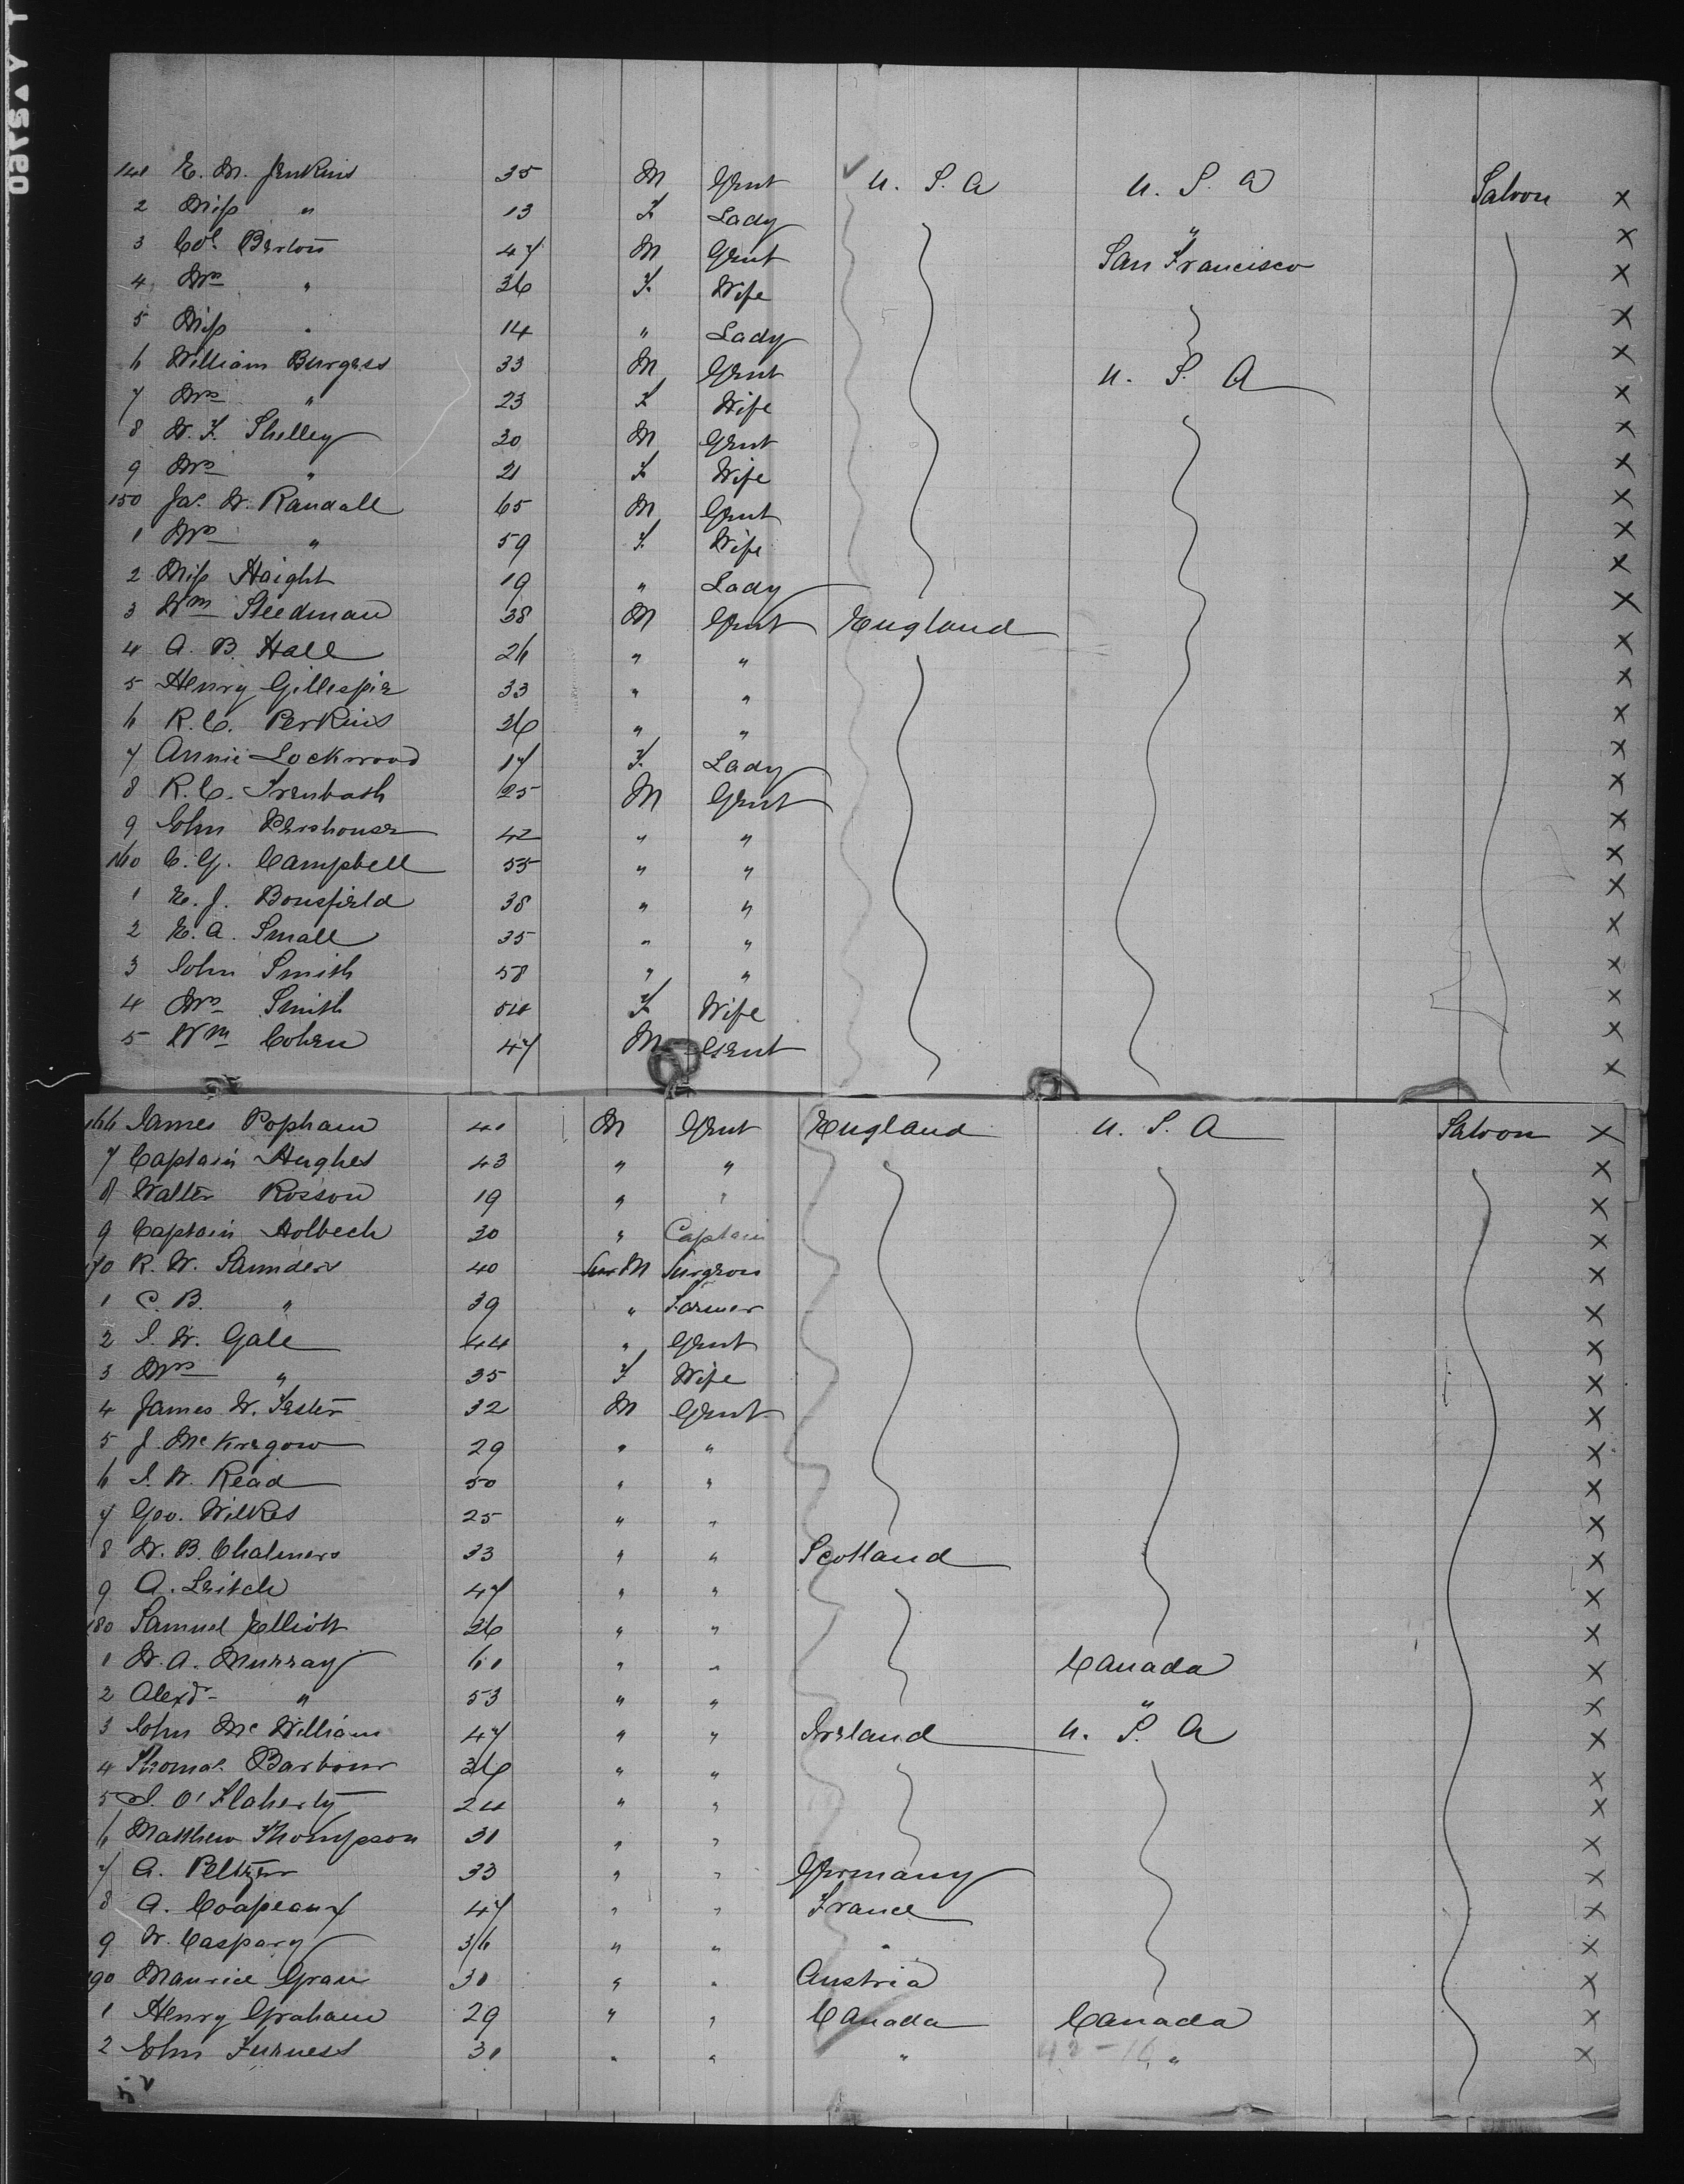 141 E. M. Jenkins 35 M Gent U. S. A U. S. A Saloon X
2 Miss " 13 F Lady " X
3 Col Barton 47 M Gent San Francisco X
4 Mrs " 36 F. Wife X
5 Miss " 14 " Lady X
6 William Burgess 33 M Gent U. S. A X
7 Mrs " 23 F Wife X
8 W. F. Shelley 30 M Gent X
9 Mrs " 21 F Wife X
150 Jas. W. Randall 65 M Gent X
1 Mrs " 59 F. Wife X
2 Miss Haight 19 " Lady X
3 Wm Steedman 38 M Gent England X
4 A. B. Hall 26 " " X
5 Henry Gillespie 33 " " X
6 R. C. Perkins 36 " " X
7 Annie Lockwood 17 F. Lady X
8 R. C. 25 M Gent X
9 John Pershouse 42 " " X
160 C. G. Campbell 55 " " X
1 E. J. Bousfield 38 " " X
2 E. A. Small 35 " " X
3 John Smith 58 " " X
4 Mrs Smith 54 F Wife X
5 Wm Cohen 47 M Gent X
166 James Popham 41 M Gent England U. S. A Saloon X
7 Captain Hughes 43 " " X
8 Walter Rosson 19 " " X
9 Captain Holbech 30 " Captain X
170 R. W. Saunders 40 Sur M Surgeon X
1 C. B. " 39 " Farmer X
2 J. W. Gale 44 " Gent X
3 Mrs " 35 F Wife X
4 James W. Fester 32 M Gent X
5 J. 29 " " X
6 J. W. Read 50 " " X
7 Geo. Wilkes 25 " " X
8 W. B. Chalmers 33 " " Scotland X
9 A. Leitch 47 " " X
180 Samuel Elliott 36 " " X
1 W. A. Murray 61 " " Canada X
2 Alexdr " 53 " " " X
3 John McWilliam 47 " " Ireland U. S. A X
4 Thomas Barbour 36 " " X
5 J. O'Flaherty 24 " " X
6 Matthew Thompson 31 " " X
7 A. Peltzer 33 " " Germany X
8 A. 47 " " France X
9 W. Caspary 36 " " " X
190 Maurice Grau 30 " " Austria X
1 Henry Graham 29 " " Canada Canada X
2 John Furness 31 " " " " X